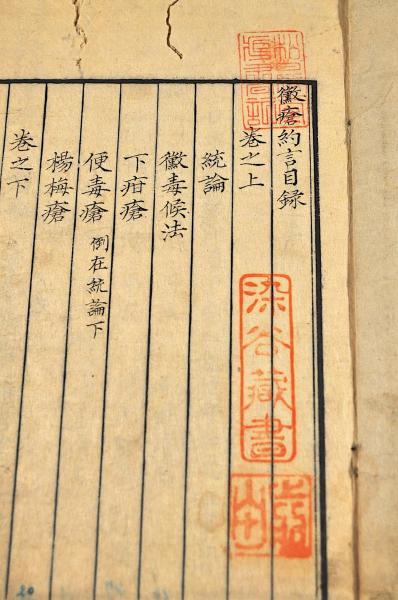 黴瘡約言目録
卷之上
統論
黴毒候法
下疳瘡
便毒瘡 例在統論下
楊梅瘡
卷之下
深谷藏書